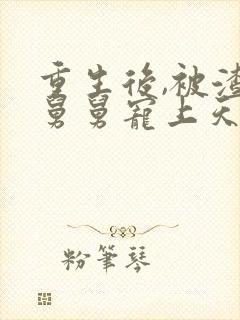 重生後,被渣
舅舅寵上天
粉筆琴